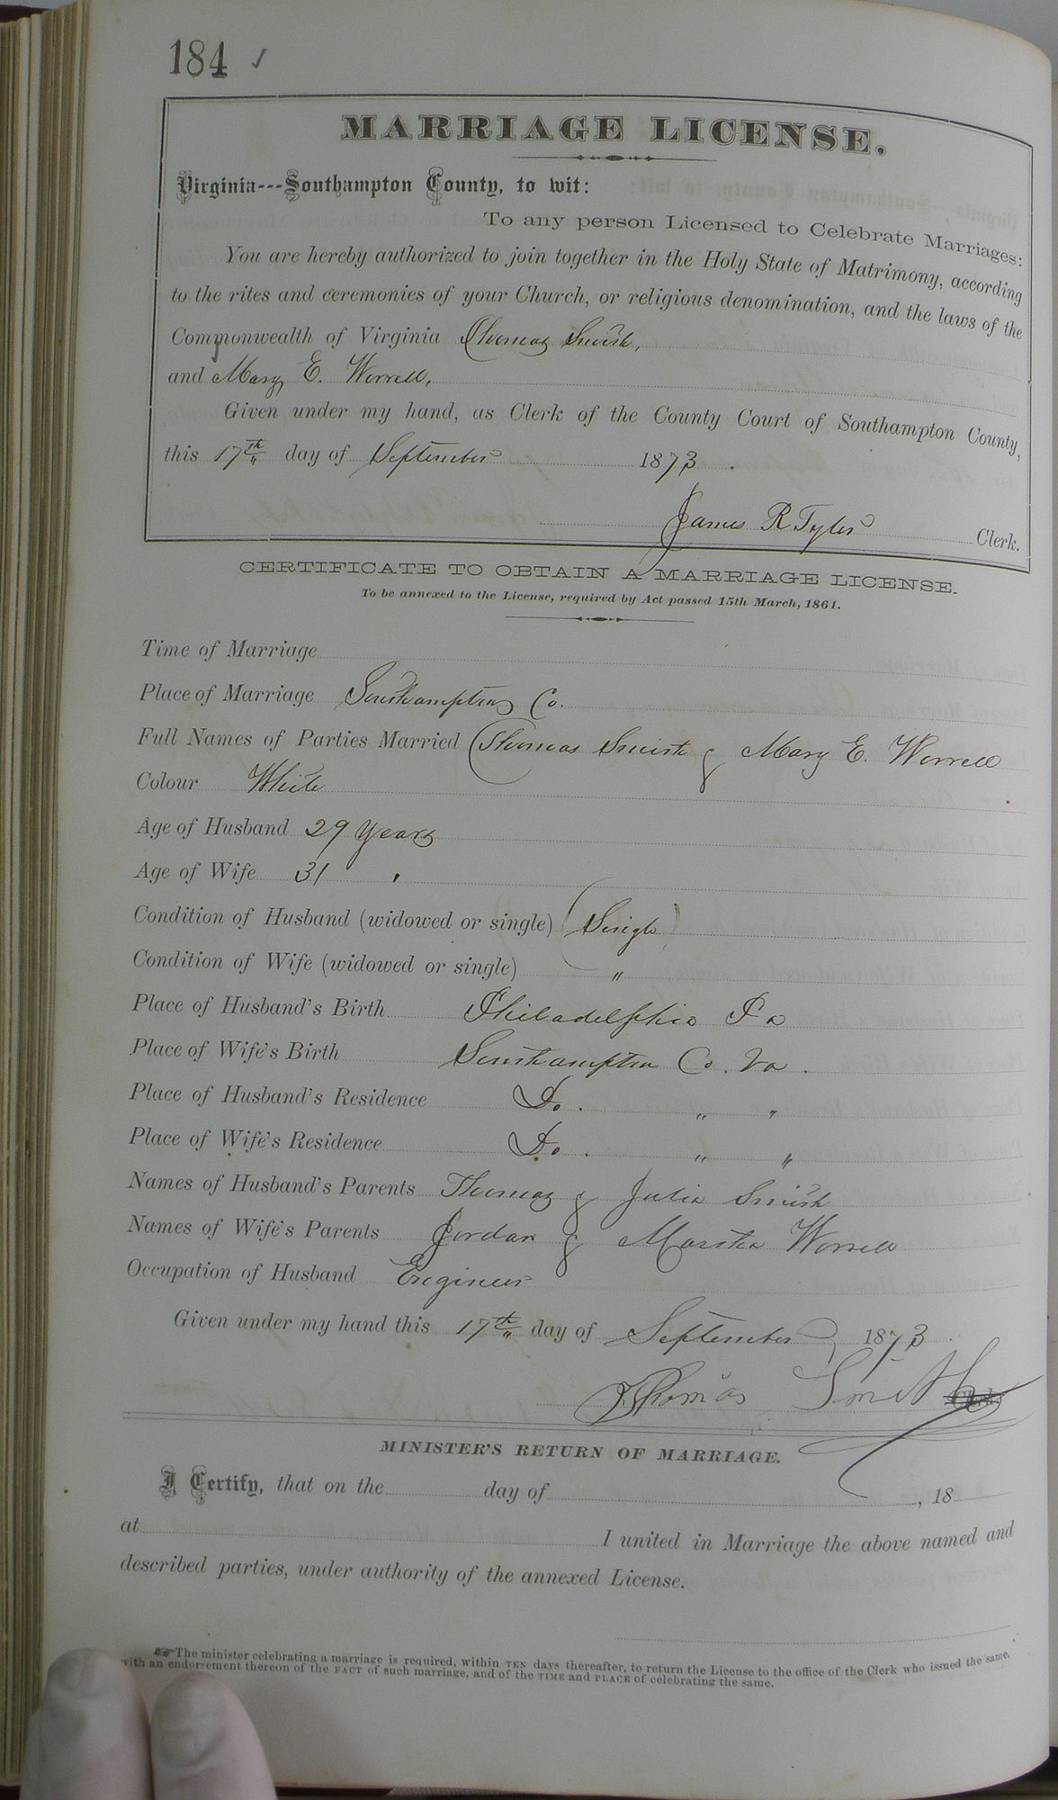 184 ✓
MARRIAGE LICENSE.
Virginia---Southampton County, to wit:
To any person Licensed to Celebrate Marriages:
You are hereby authorized to join together in the Holy State of Matrimony, according
to the rites and ceremonies of your Church, or religious denomination, and the laws of the
Commonwealth of Virginia Thomas Smith,
and Mary E. Worrell,
Given under my hand, as Clerk of the County Court of Southampton County,
this 17th day of September 1873.
James R Tyler Clerk.
CERTIFICATE TO OBTAIN A MARRIAGE LICENSE.
To be annexed to the License, required by Act passed 15th March, 1861.
Time of Marriage
Place of Marriage Southampton Co.
Full Names of Parties Married Thomas Smith & Mary E. Worrell
Colour White
Age of Husband 29 Years
Age of Wife 31 "
Condition of Husband (widowed or single) (Single)
Condition of Wife (widowed or single) "
Place of Husband's Birth Philadelphia Pa
Place of Wife's Birth Southampton Co. Va.
Place of Husband's Residence Do. " "
Place of Wife's Residence Do. " "
Names of Husband's Parents Thomas & Julia Smith
Names of Wife's Parents Jordan & Martha Worrell
Occupation of Husband Engineer
Given under my hand this 17th day of September 1873
Thomas Smith Clerk.
MINISTER'S RETURN OF MARRIAGE.
I Certify, that on the day of , 18
at I united in Marriage the above named and
described parties, under authority of the annexed License.
☞ The minister celebrating a marriage is required, within TEN days thereafter, to return the License to the office of the Clerk who issued the same,
with an endorsement thereon of the FACT of such marriage, and of the TIME and PLACE of celebrating the same.